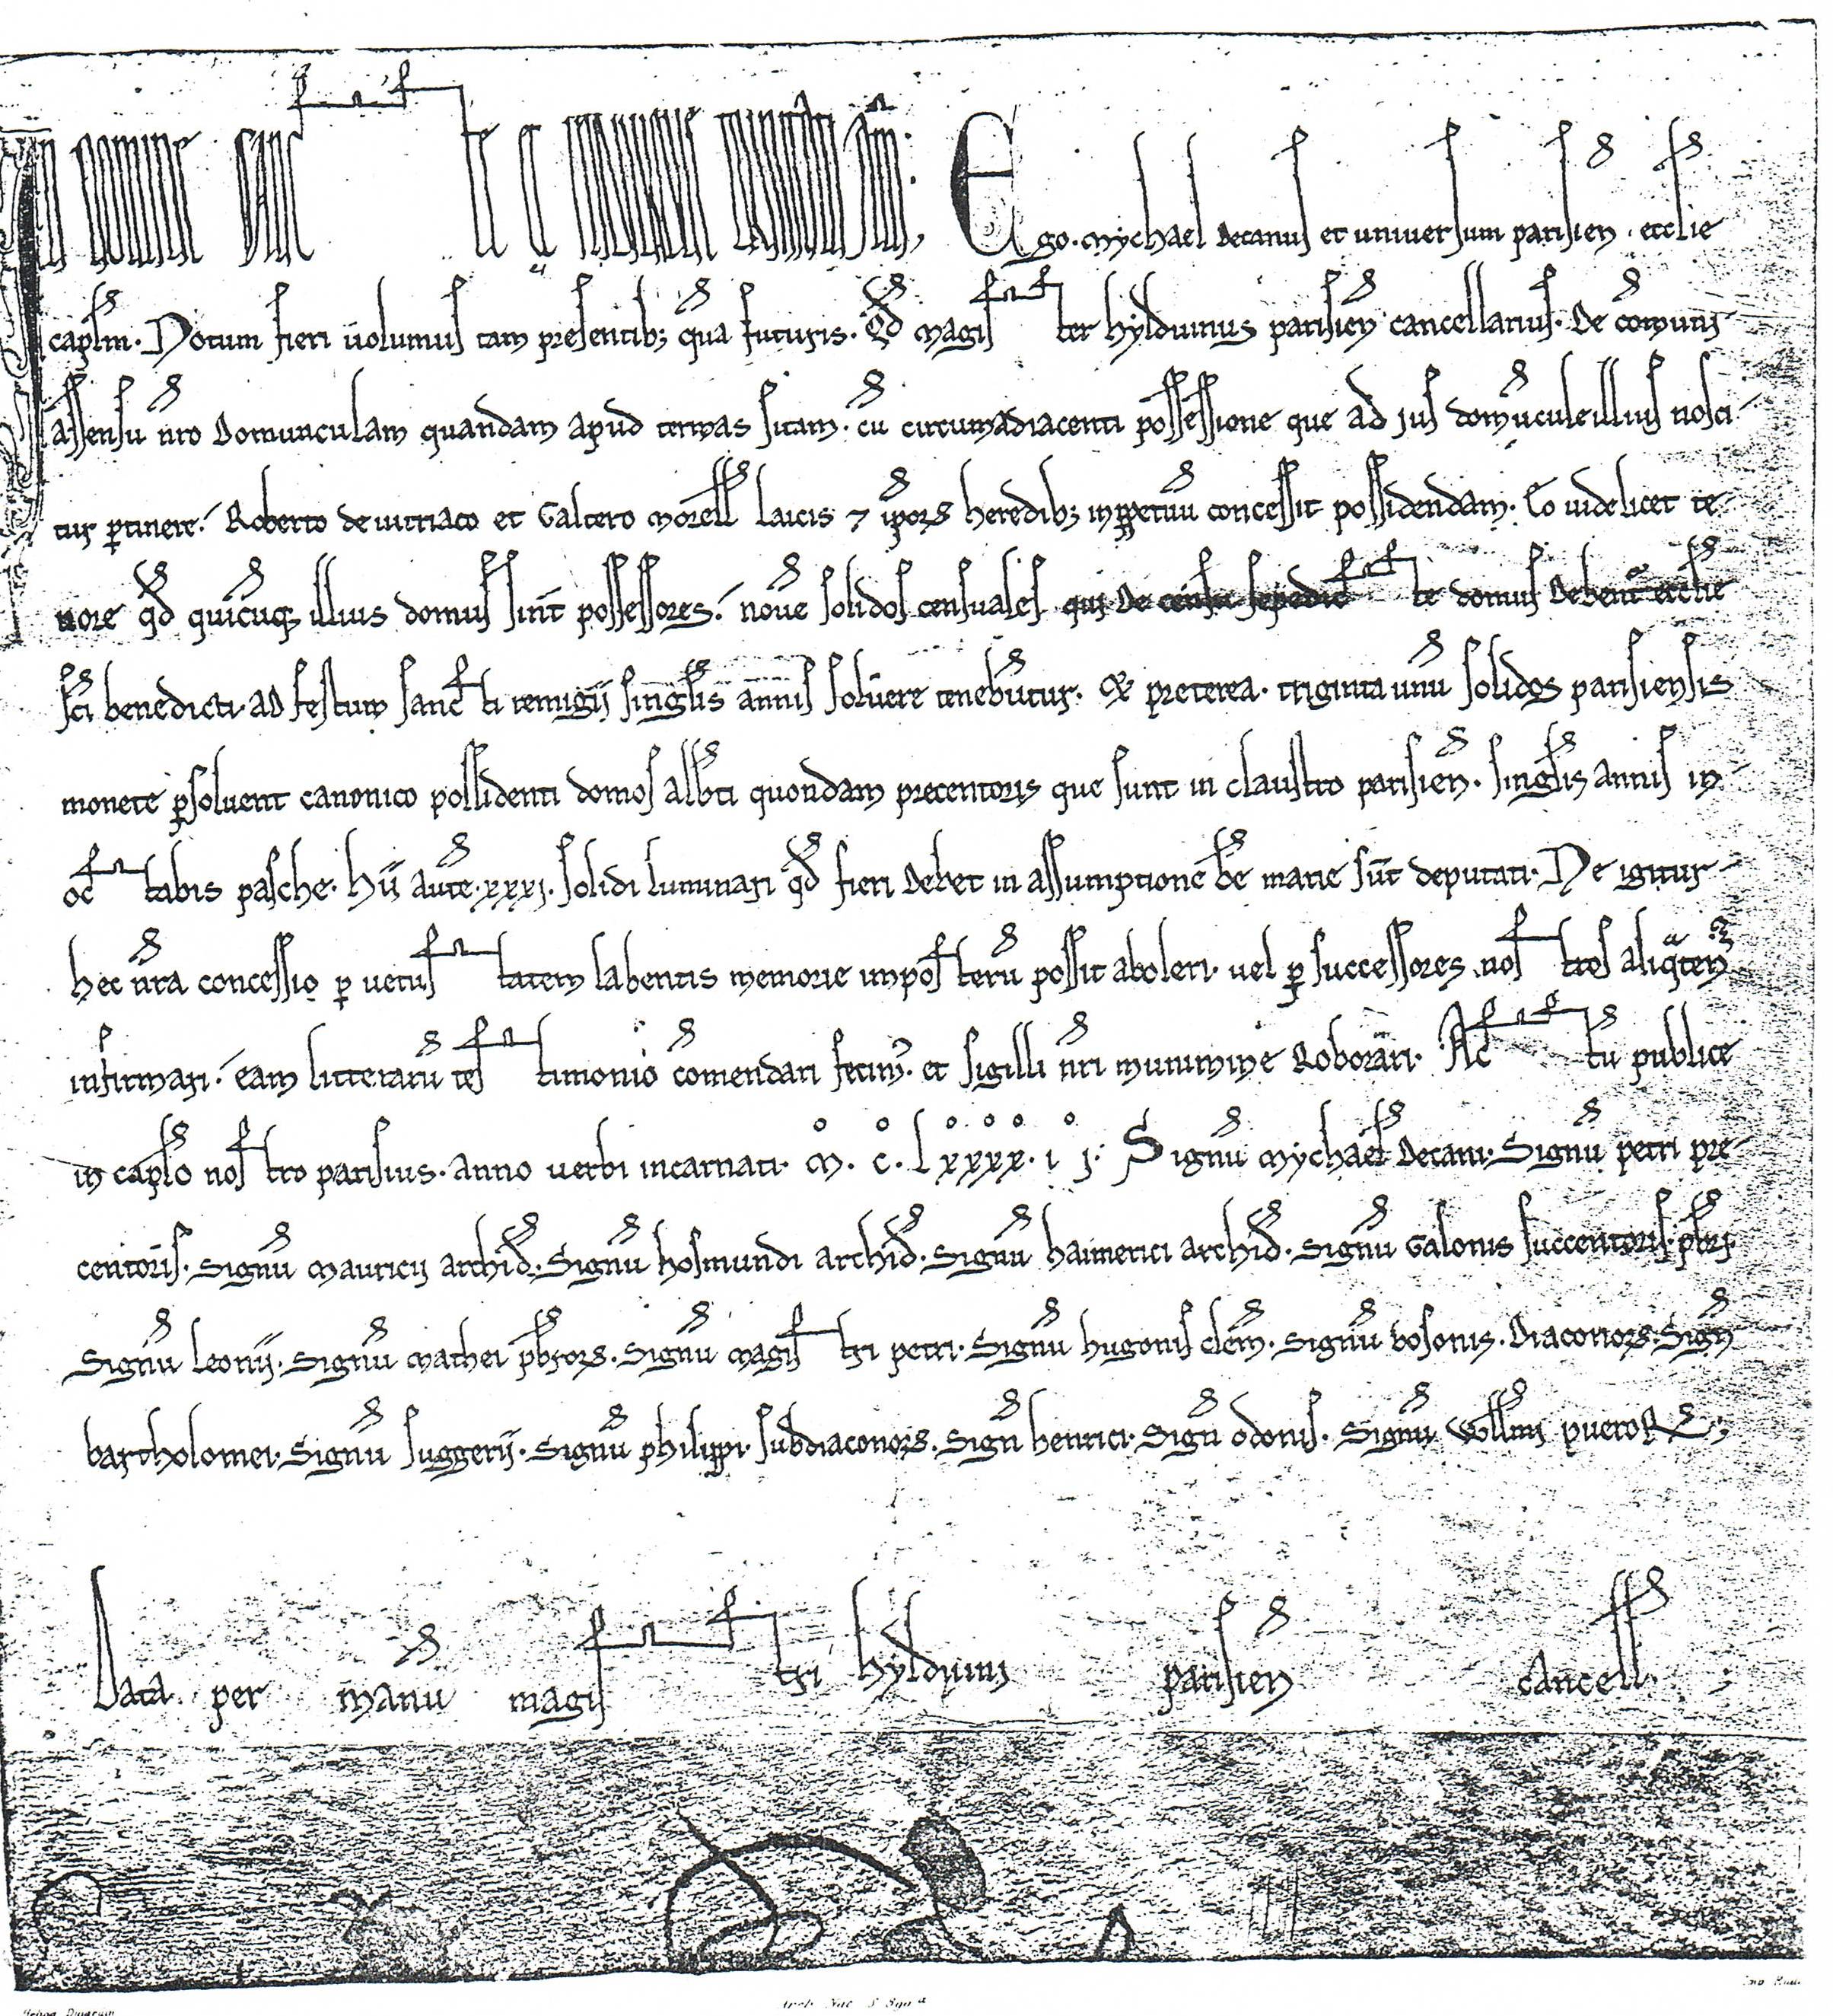 In nomine sancte et individue trinitatis Am̄. Ego. mychael decanus et universum parisien̄. ecclīe
capłm. Notum fieri volumus tam presentib; q̄ua futuris. Qd̄ magister hylduinus parisien̄ cancellarius. De cōmuni
assensu n̄ro domunculam quandam apud termas sitam. cū circumadiacenti possessione que ad jus domūcule illius nosci-
tur ꝑtinere. Roberto de vitriaco et Galtero morell̄ laicis ⁊ ip̄oꝝ heredib; inꝑpetuū concessit possidendam. Eo videlicet te-
nore qd̄ quicūq; illius domus sint̄ possessores. nove solidos censuales qui de censu sepedicte domus debent̄ ecclīe
sc̄i benedicti. ad festum sancti remigij singłis annis solvere tenebūtur. & preterea. triginta unū solidos parisiensis
monete ꝑsolvent canonico possidenti domos alb̄ti quondam precentoris que sunt in claustro parisien̄. singłis annis in
octabis pasche. Hii aūte. xxxj. solidi luminari qd̄ fieri debet in assumptione b̄e marie sūt deputati. Ne igitur
hec n̄ra concessio ꝑ vetustatem labentis memorie imposterū possit aboleri. vel ꝑ successores nostros aliq̄ten̄
infirmari. eam litterarū testimonio cōmendari fecim᾿. et sigilli n̄ri munimine Roborari. Actū publice
in capło nostro parisius. anno verbi incarnati. M. c. lxxxx. i j. Signū mychael̄ decani. Signū petri pre-
centoris. Signū mauricii archid̄. Signū hosmundi archid̄. Signū haimerici archid̄. Signū Galonis succentoris. p̄bri
Signū leonij. Signū mathei p̄broꝝ. Signū magistri petri. Signū hugonis clem̄. Signū bosonis. Diaconoꝝ. Sign̄
bartholomei. Signū suggerij. Signū philippi. subdiaconoꝝ. Sign̄ henrici. Sign̄ odonis. Signū Willmi pueroꝝ;
Data per manū magistri hylduini parisien̄ cancell̄.